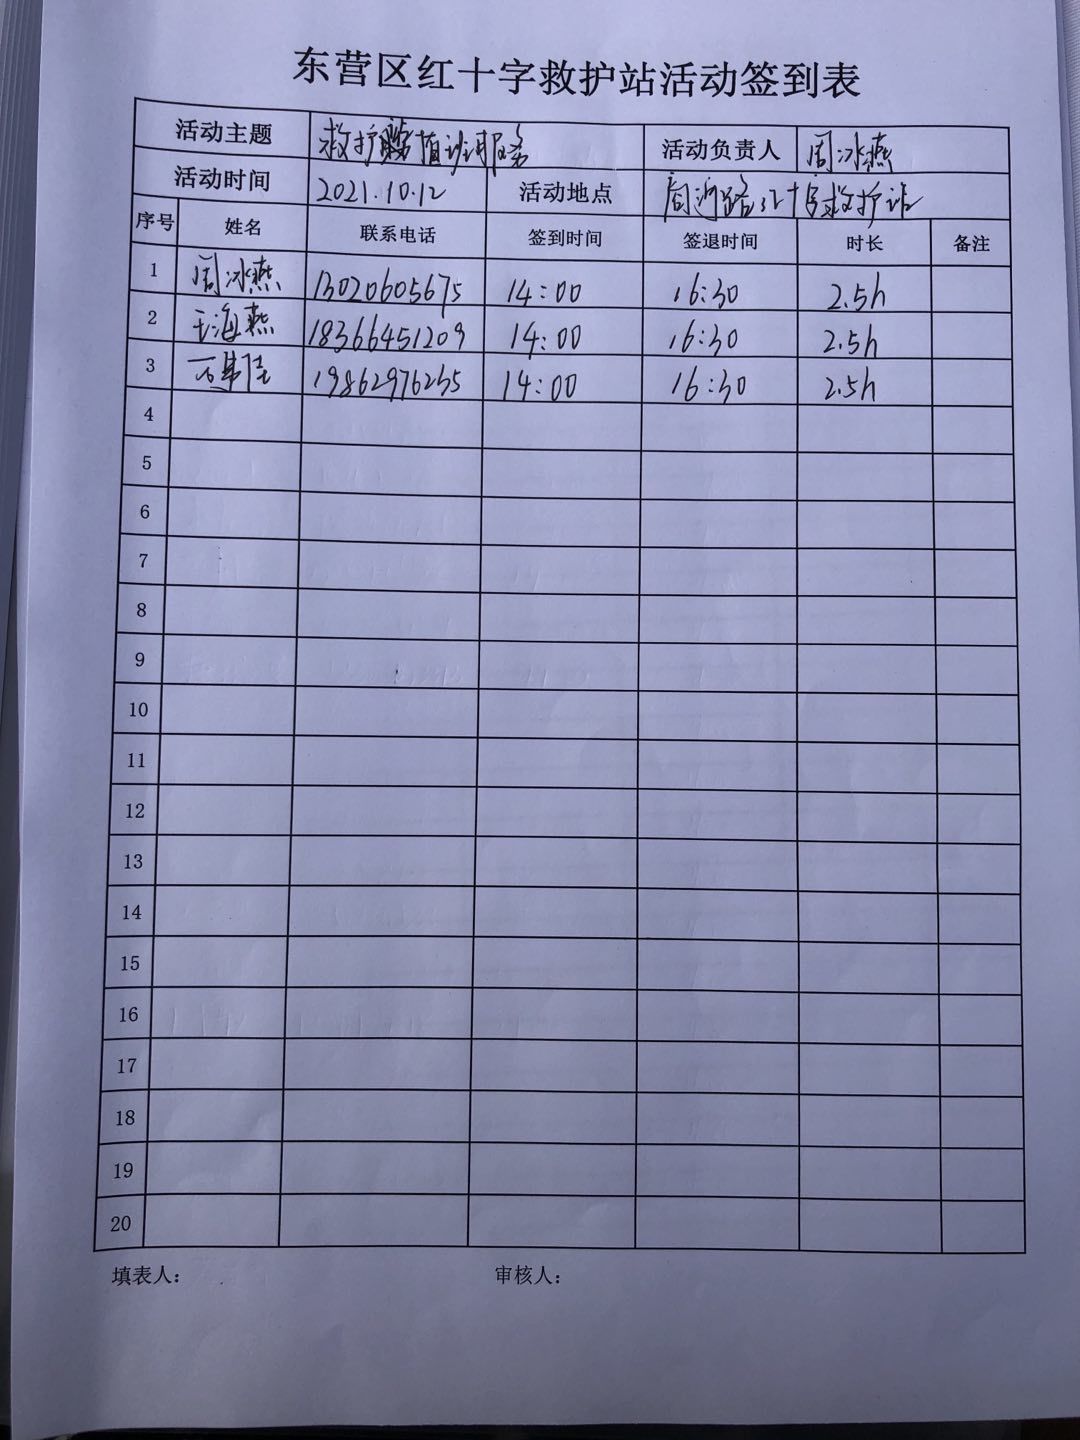 东营区红十字救护站活动签到表
活动主题 救护站值班服务 活动负责人 周冰燕
活动时间 2021.10.12 活动地点 周河路红十字救护站
序号 姓名 联系电话 签到时间 签退时间 时长 备注
1 周冰燕 13020605675 14:00 16:30 2.5h
2 王海燕 18366451209 14:00 16:30 2.5h
3 19862976235 14:00 16:30 2.5h
4
5
6
7
8
9
10
11
12
13
14
15
16
17
18
19
20
填表人: 审核人: